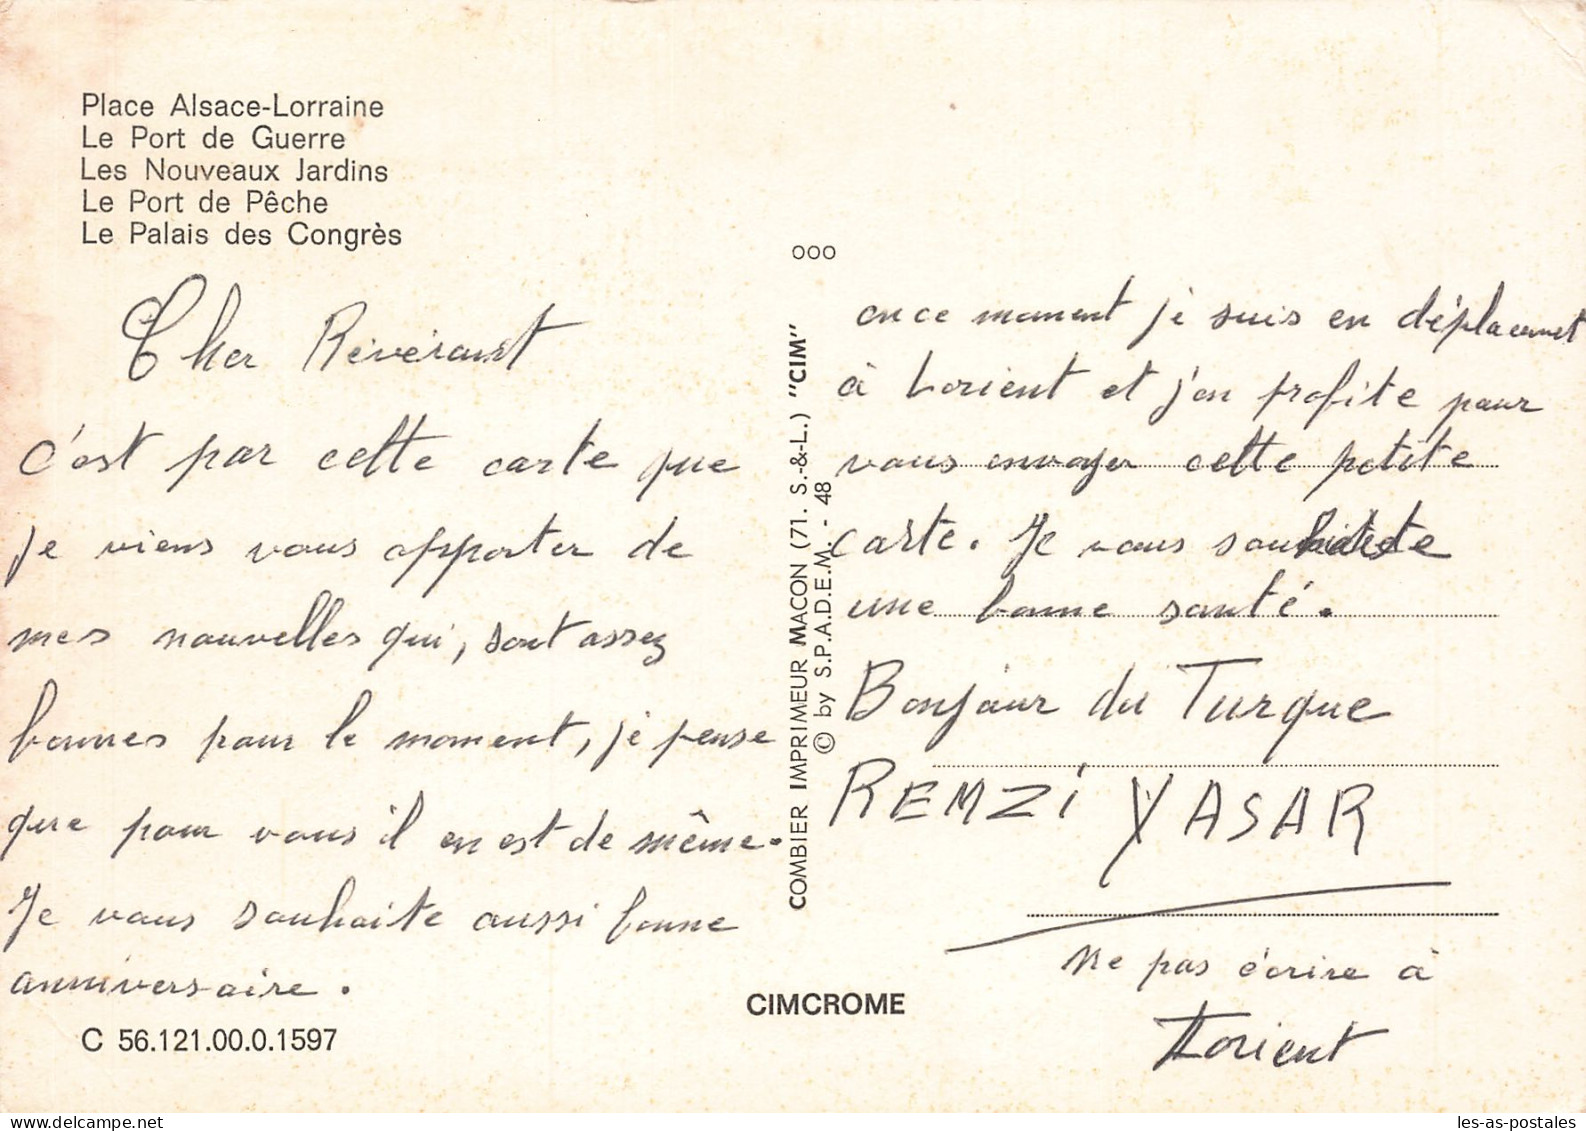 Place Alsace-Lorraine
Le Port de Guerre
Les Nouveaux Jardins
Le Port de Pêche
Le Palais des Congrès
Cher Révérant
c'est par cette carte que
je viens vous apporter de
mes nouvelles qui, sont assez
bonnes pour le moment, je pense
que pour vous il en est de même.
Je vous souhaite aussi bonne
anniversaire.
C 56.121.00.0.1597
ooo
COMBIER IMPRIMEUR MACON (71. S.-&-L.) "CIM"
© by S.P.A.D.E.M. - 48
CIMCROME
en ce moment je suis en déplacemet
à Lorient et j'en profite pour
vous envoyer cette petite
carte. Je vous souhaite
une bonne santé.
Bonjour du Turque
REMZİ YASAR
ne pas écrire à
Lorient
les-as-postales
delcampe.net